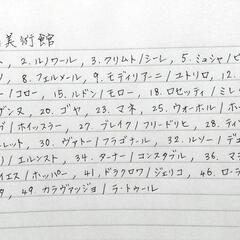 美術館
, 2. ルノワール, 3. クリムト/シーレ, 5. ミュシャ/ビ
, 8. フェルメール, 9. モディリアーニ/ユトリロ, 12.
ー/コロー, 15. ルドン/モロー, 18. ロセッティ/ミレ
ザンヌ, 20. ゴヤ, 23. マネ, 25. ウォーホル/ホ
/ホイッスラー, 27. ブレイク/フリードリヒ, 28. ティ
レット, 30. ヴァトー/フラゴナール, 32. ルソー/デュ
/エルンスト, 34. ターナー/コンスタブル, 36. マ
イエス/ホッパー, 41. ドラクロワ/ジェリコ, 46. ロー
, 49. カラヴァッジョ/ラ・トゥール